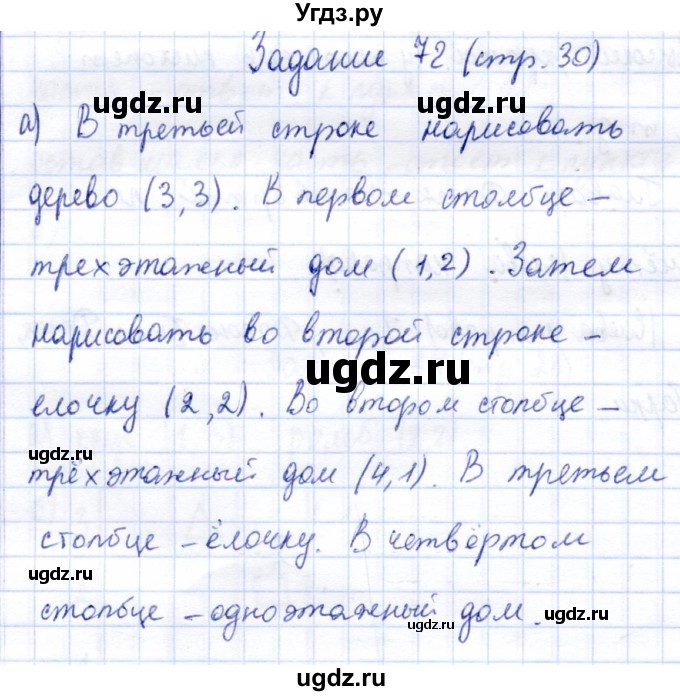 Угдз.ру
Задание 72 (стр. 30)
а) В третьей строке нарисовать
дерево (3,3). В первом столбце –
трехэтажный дом (1,2). Затем
нарисовать во второй строке –
елочку (2,2). Во втором столбце –
трёхэтажный дом (4,1). В третьем
столбце – ёлочку. В четвёртом
столбце – одноэтажный дом.
ugdz.ru
ugdz.ru
ugdz.ru
ugdz.ru
ugdz.ru
ugdz.ru
ugdz.ru
ugdz.ru
ugdz.ru
ugdz.ru
ugdz.ru
ugdz.ru
ugdz.ru